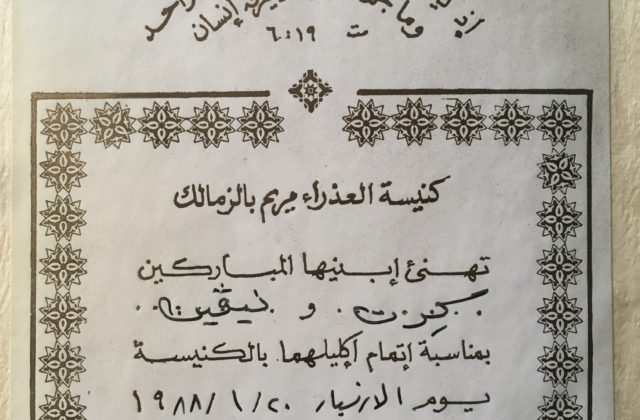 واحد
وما إنسان
مت ١٩:٦
كنيسة العذراء مريم بالزمالك
تهنئ إبنيها المباركين
كرت و نيڤين
بمناسبة إتمام إكليلهما بالكنيسة
يوم الاربعاء ٢٠/١/١٩٨٨